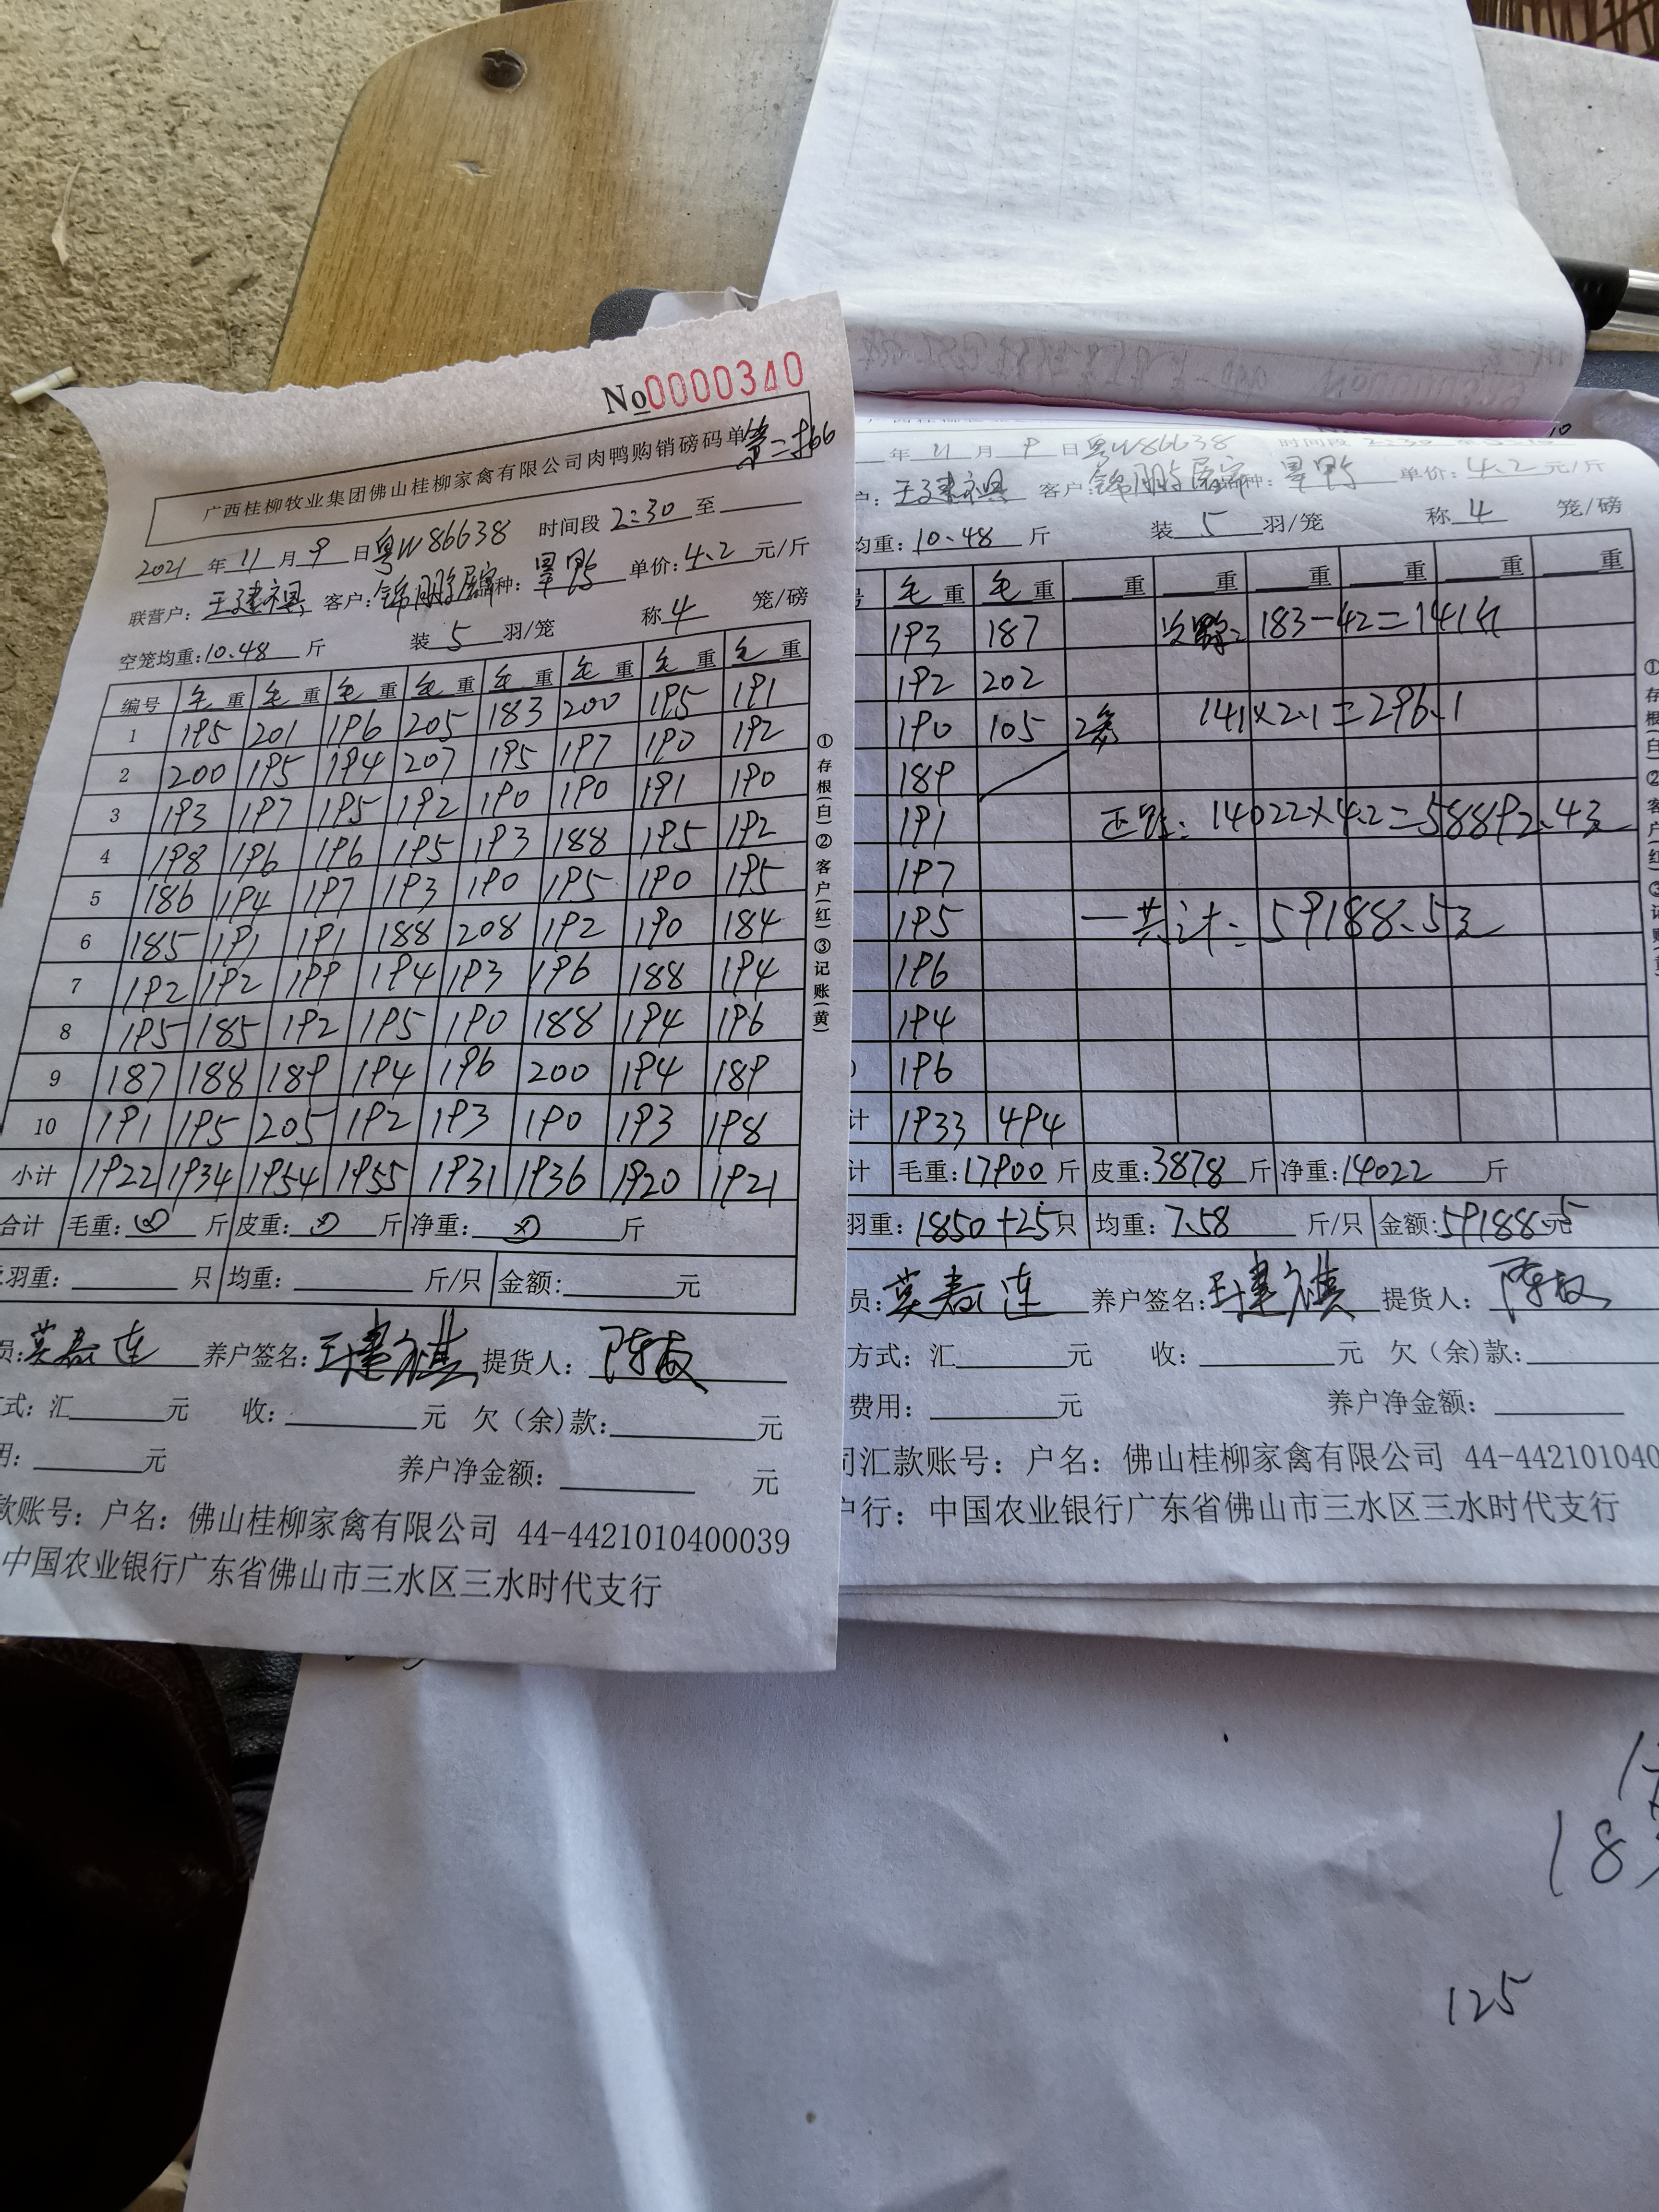 No 0000340
广西桂柳牧业集团佛山桂柳家禽有限公司肉鸭购销磅码单
2021 年 11 月 9 日 粤W86638 时间段 2:30 至
联营户: 王建祺 客户: 锦鹏 种: 单价: 4.2 元/斤
空笼均重: 10.48 斤 装 5 羽/笼 称 4 笼/磅
编号 毛重 毛重 毛重 毛重 毛重 毛重 毛重 毛重
1 195 201 196 205 183 200 195 191
2 200 195 194 207 195 197 190 192
3 193 197 195 192 190 190 191 190
4 198 196 196 195 193 188 195 192
5 186 194 197 193 190 195 190 195
6 185 191 191 188 208 192 190 184
7 192 192 199 194 193 196 188 194
8 195 185 192 195 190 188 194 196
9 187 188 189 194 196 200 194 189
10 191 195 205 192 193 190 193 198
小计 1922 1934 1954 1955 1931 1936 1920 1921
合计 毛重: 斤 皮重: 斤 净重: 斤
羽重: 只 均重: 斤/只 金额: 元
员: 莫春连 养户签名: 王建祺 提货人: 陈
式: 汇 元 收: 元 欠(余)款: 元
用: 元 养户净金额: 元
款账号: 户名: 佛山桂柳家禽有限公司 44-4421010400039
中国农业银行广东省佛山市三水区三水时代支行
①存根(白)②客户(红)③记账(黄)
年 11 月 9 日 粤W86638 时间段 2:30
户: 王建祺 客户: 锦鹏 种: 单价: 4.2 元/斤
均重: 10.48 斤 装 5 羽/笼 称 4 笼/磅
号 毛重 毛重 重 重 重 重 重 重
193 187 183-42=141斤
192 202
190 105 2笼 141×2.1=296.1
189
191 正鸭: 14022×4.2=58892.4元
197
195 一共计: 59188.5元
196
194
196
计 1933 494
计 毛重: 17900 斤 皮重: 3878 斤 净重: 14022 斤
羽重: 1850+25 只 均重: 7.58 斤/只 金额: 59188.5 元
员: 莫春连 养户签名: 王建祺 提货人: 陈
方式: 汇 元 收: 元 欠(余)款:
费用: 元 养户净金额:
司汇款账号: 户名: 佛山桂柳家禽有限公司 44-442101040
户行: 中国农业银行广东省佛山市三水区三水时代支行
125